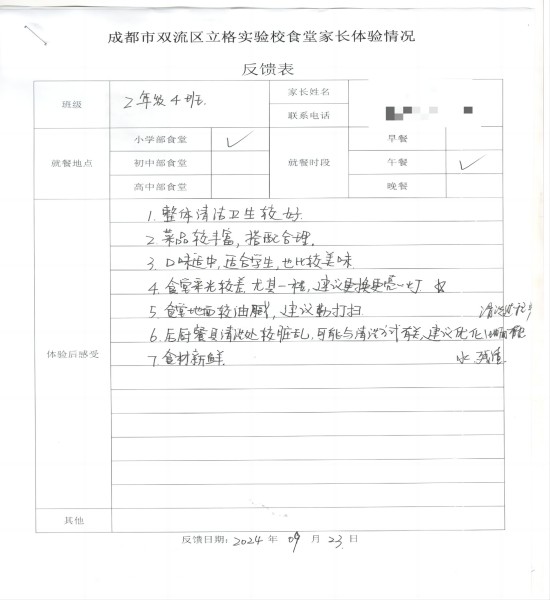 成都市双流区立格实验校食堂家长体验情况
反馈表
班级
2年级4班.
家长姓名
联系电话
就餐地点
小学部食堂 ✓
初中部食堂
高中部食堂
就餐时段
早餐
午餐 ✓
晚餐
体验后感受
1. 整体清洁卫生较好.
2. 菜品较丰富, 搭配合理.
3. 口味适中, 适合学生, 也比较美味.
4. 食堂采光较差 尤其一楼, 建议更换更亮心灯
5. 食堂地面较油腻, 建议勤打扫
6. 后厨餐具清洗处较脏乱, 可能与清洗方式有关, 建议优化
清洗
地面
水 残渣
7. 食材新鲜.
其他
反馈日期: 2024 年 09 月 23 日